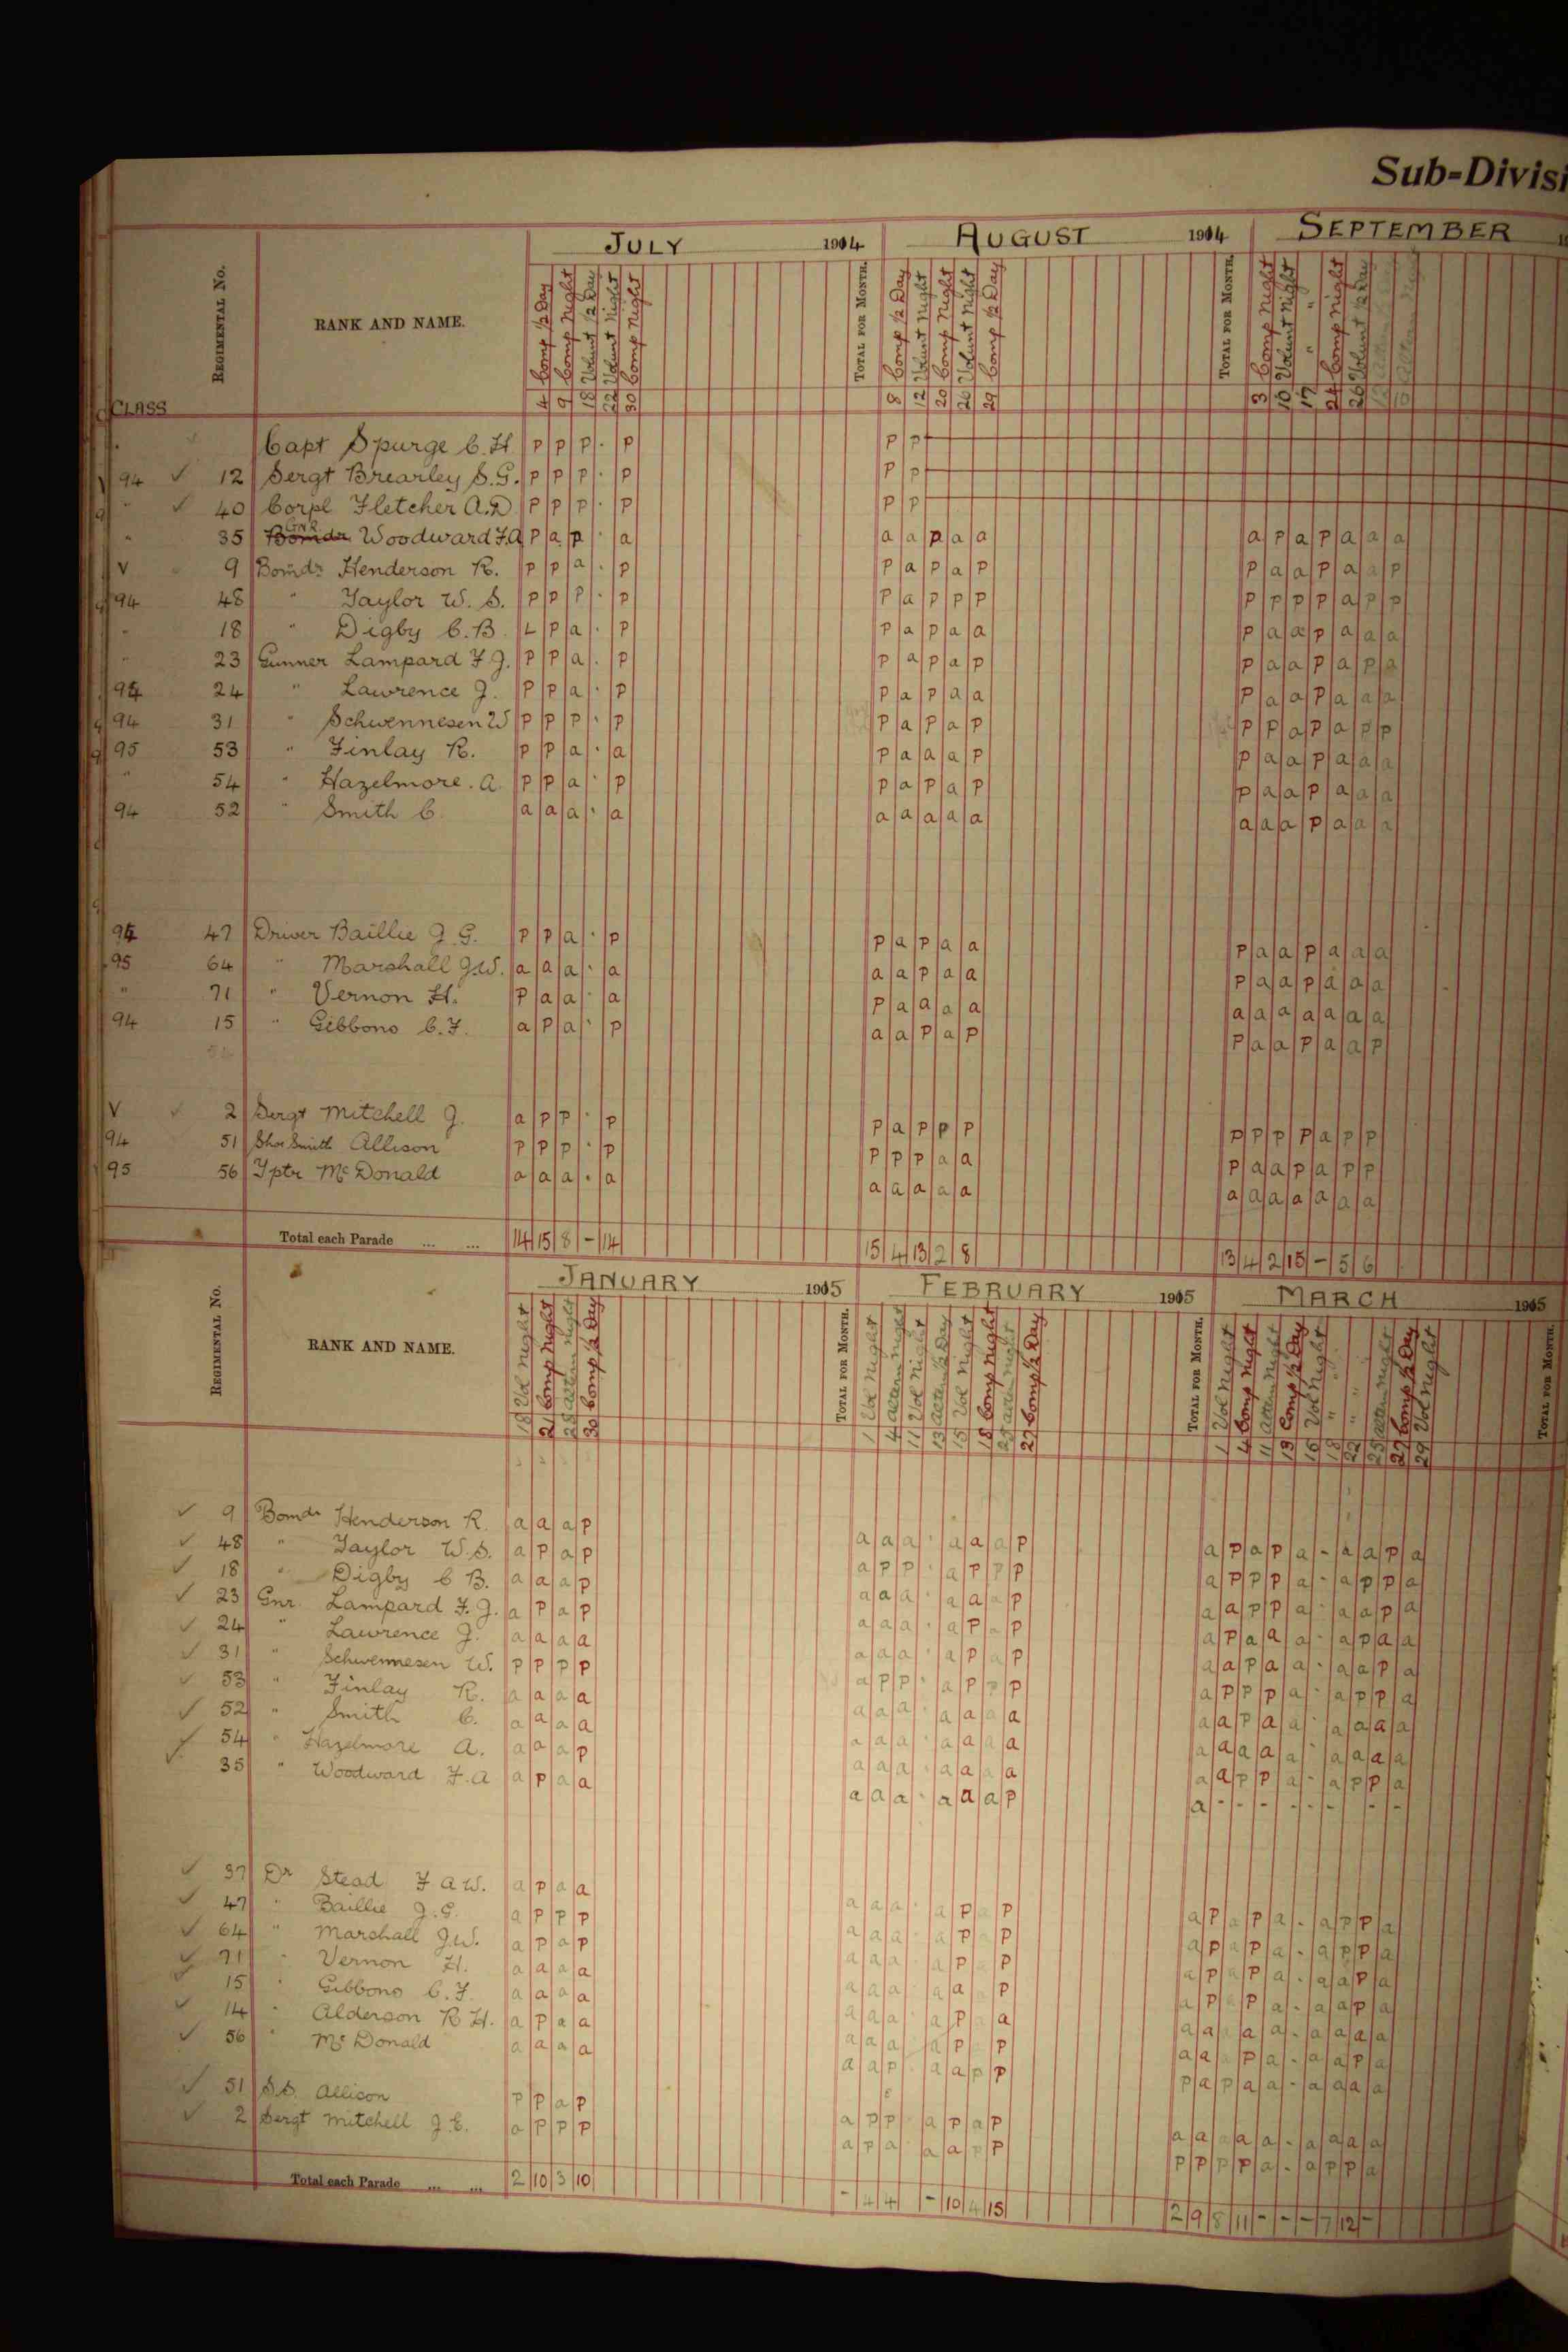 Sub-Divisi
JULY 1914 AUGUST 1914 SEPTEMBER
CLASS REGIMENTAL No. RANK AND NAME. 4 Comp ½ Day 9 Comp Night 18 Volunt ½ Day 22 Volunt Night 30 Comp Night TOTAL FOR MONTH. 8 Comp ½ Day 12 Volunt Night 20 Comp Night 26 Volunt Night 29 Comp ½ Day TOTAL FOR MONTH. 3 Comp Night 10 Volunt Night 17 " " 24 Comp Night 26 Volunt ½ Day
Capt Spurge C.H. P P P · P P P
94 ✓ 12 Sergt Brearley S.G. P P P · P P P
" ✓ 40 Corpl Fletcher A.D. P P P · P P P
" 35 Bomdr GNR. Woodward F.A P a p · a a a p a a a P a P a a a
V 9 Bomdr Henderson R. P P a · P P a P a P P a a P a a P
94 48 " Taylor W. S. P P P · P P a P P P P P P P a P P
" 18 " Digby C.B. L P a · P P a P a a P a a P a a a
" 23 Gunner Lampard F J. P P a · P P a P a P P a a P a P a
94 24 " Lawrence J. P P a · P P a P a a P a a P a a a
94 31 " Schwennesen W P P P · P P a P a P P P a P a P P
95 53 " Finlay R. P P a · a P a a a P P a a P a a a
" 54 " Hazelmore. A. P P a · P P a P a P P a a P a a a
94 52 " Smith C. a a a · a a a a a a a a a P a a a
94 47 Driver Baillie J.G. P P a · P P a P a a P a a P a a a
95 64 " Marshall J.W. a a a · a a a P a a P a a P a a a
" 71 " Vernon H. P a a · a P a a a a a a a a a a a
94 15 " Gibbons C.F. a P a · P a a P a P P a a P a a P
V ✓ 2 Sergt Mitchell J. a P P · P P a P P P P P P P a P P
94 51 Shoe Smith Allison P P P · P P P P a a P a a P a P P
95 56 Tptr McDonald a a a · a a a a a a a a a a a a a
Total each Parade ... ... 14 15 8 – 14 15 4 13 2 8 13 4 2 15 – 5 6
JANUARY 1915 FEBRUARY 1915 MARCH 1915
REGIMENTAL No. RANK AND NAME. 18 Vol Night 21 Comp Night 28 altern Night 30 Comp ½ Day TOTAL FOR MONTH. 1 Vol Night 4 altern Night 11 Vol Night 13 altern ½ Day 15 Vol Night 18 Comp Night 25 altern Night 27 Comp ½ Day TOTAL FOR MONTH. 1 Vol Night 4 Comp Night 11 altern Night 13 Comp ½ Day 15 Vol Night 18 " " 22 " " 25 altern Night 27 Comp ½ Day 29 Vol Night TOTAL FOR MONTH.
✓ 9 Bomdr Henderson R. a a a P a a a · a a a P a P a P a - a a P a
✓ 48 " Taylor W.S. a P a P a P P · a P P P a P P P a - a P P a
✓ 18 " Digby C B. a a a P a a a · a a a P a a P P a · a a P a
✓ 23 Gnr. Lampard F.J. a P a P a a a · a P a P a P a a a - a P a a
✓ 24 " Lawrence J. a a a a a a a · a P a P a a P a a · a a P a
✓ 31 " Schwennesen W. P P P P a P P · a P P P a P P P a · a P P a
✓ 53 " Finlay R. a a a a a a a · a a a a a a P a a · a a a a
✓ 52 " Smith C. a a a a a a a · a a a a a a a a a · a a a a
✓ 54 " Hazelmore A. a a a P a a a · a a a a a a P P a - a P P a
✓ 35 " Woodward F.A a P a a a a a · a a a P a - - - - - - - -
✓ 37 Dr Stead F A W. a P a a a a a · a P P a P a P a - a P P a
✓ 47 " Baillie J.G. a P P P a a a · a P P a P a P a - a P P a
✓ 64 " Marshall J.W. a P a P a a a · a P P a P a P a - a a P a
✓ 71 " Vernon H. a a a a a a a · a a P a P a P a - a a P a
✓ 15 " Gibbons C.F. a a a a a a a · a P a a a a a a - a a a a
✓ 14 " Alderson R H. a P a a a a a · a P P a a P a - a a P a
✓ 56 " McDonald a a a a a a P · a a P P P a P a a - a a a a
✓ 51 S.S. Allison P P a P a P P · a P a P a a a a a - a a a a
✓ 2 Sergt Mitchell J.E. a P P P a P a · a a P P P P P P a - a P P a
Total each Parade ... ... 2 10 3 10 – 4 4 – 10 4 15 2 9 8 11 – – – 7 12 –